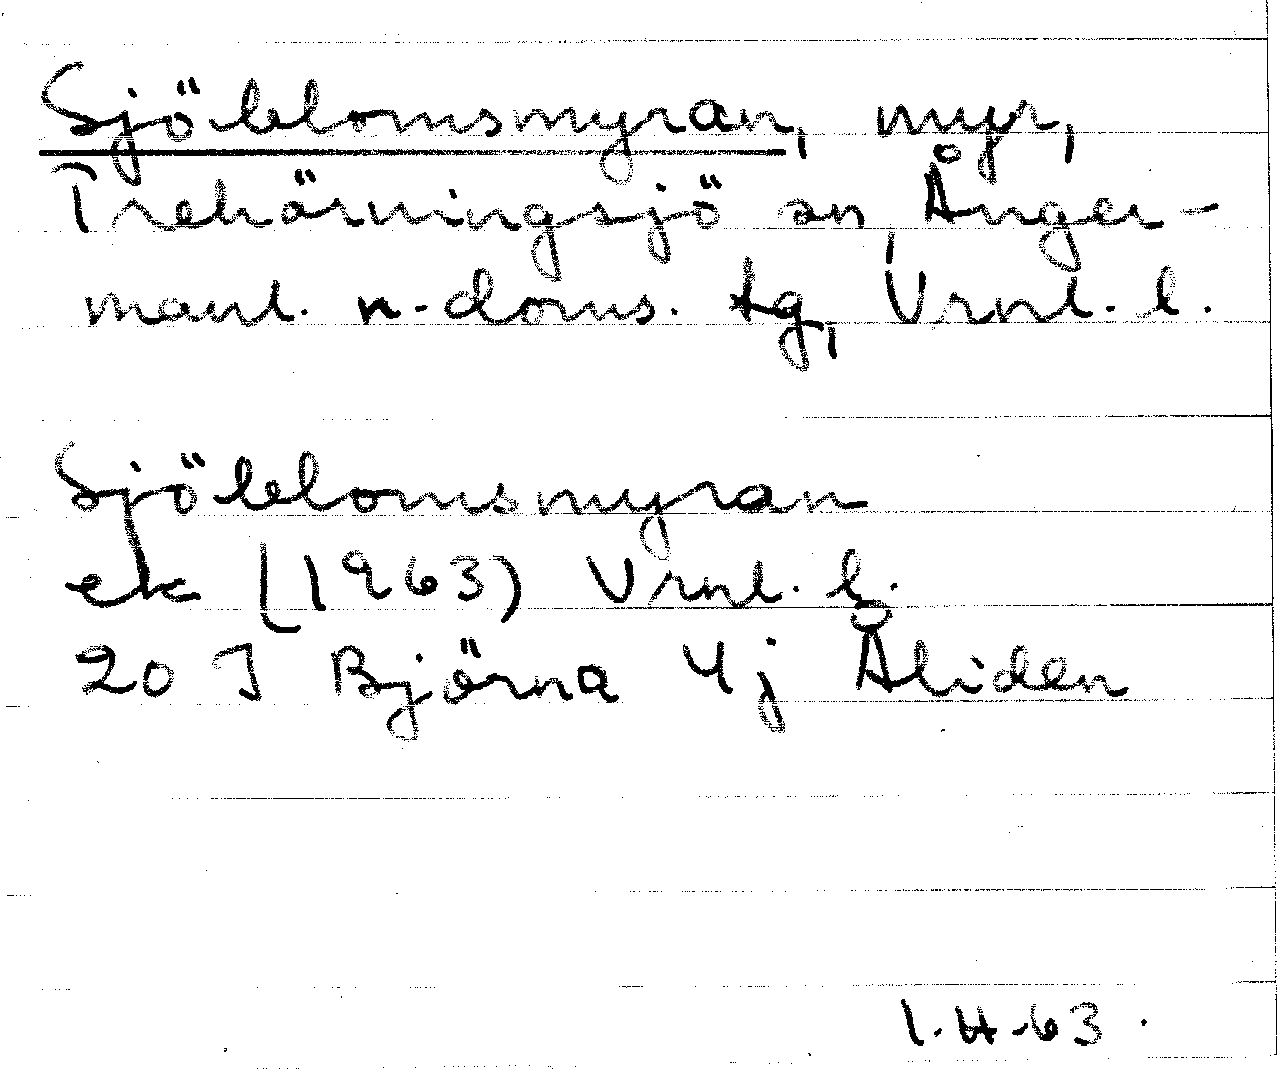 Sjöblomsmyran, myr,
Trehörningsjö sn, Ånger-
manl. n. doms. tg, Vrnl. l.
Sjöblomsmyran
ek (1963) Vrnl. l.
20 J Björna 4j Åliden
1.H.63.